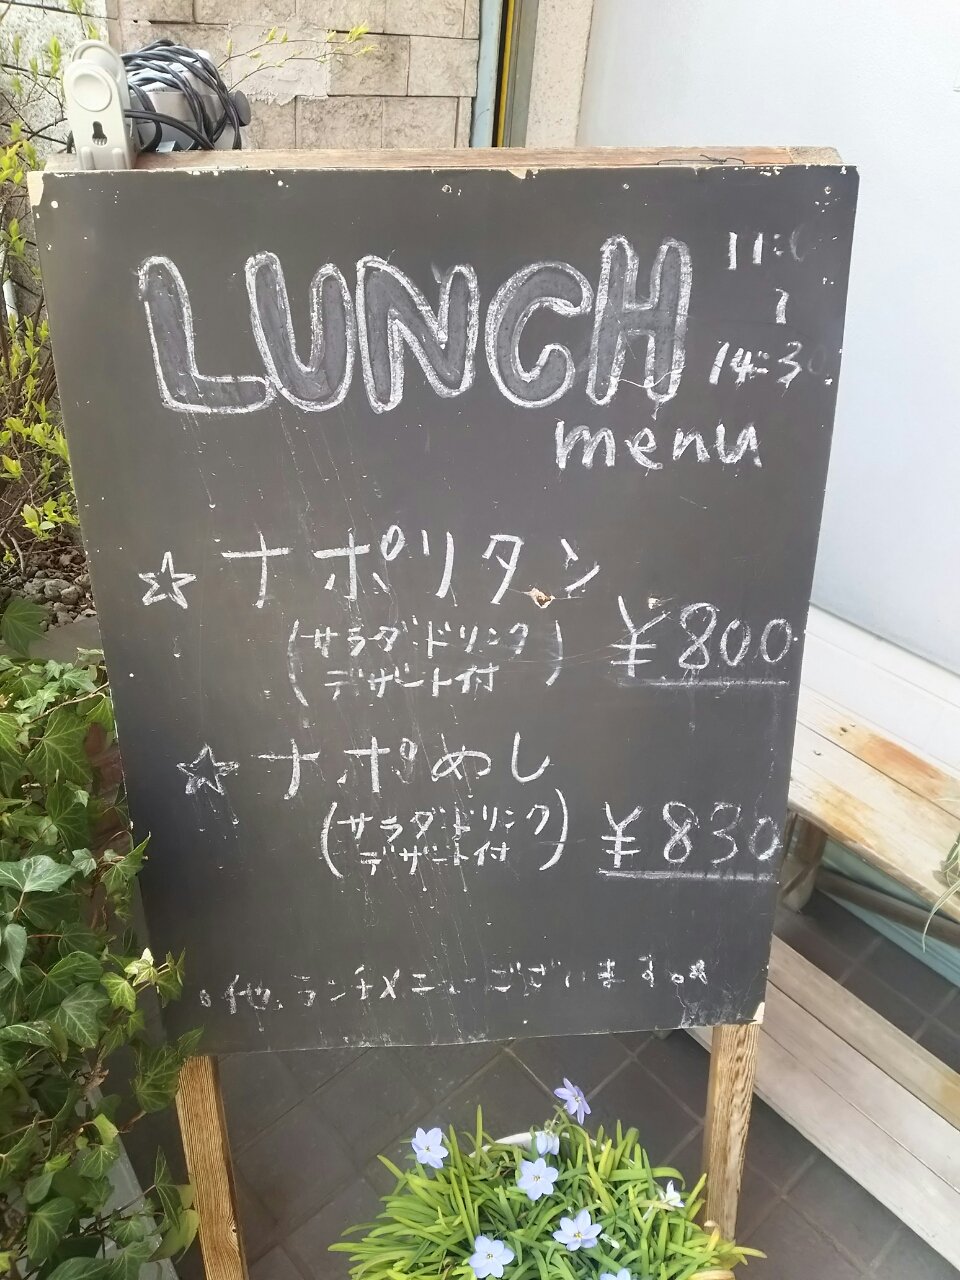 LUNCH
11:0
~
14:30
menu
☆ ナポリタン
(サラダ・ドリンク
デザート付)
¥800
☆ ナポめし
(サラダ・ドリンク
デザート付)
¥830
。他、ランチメニューございます。